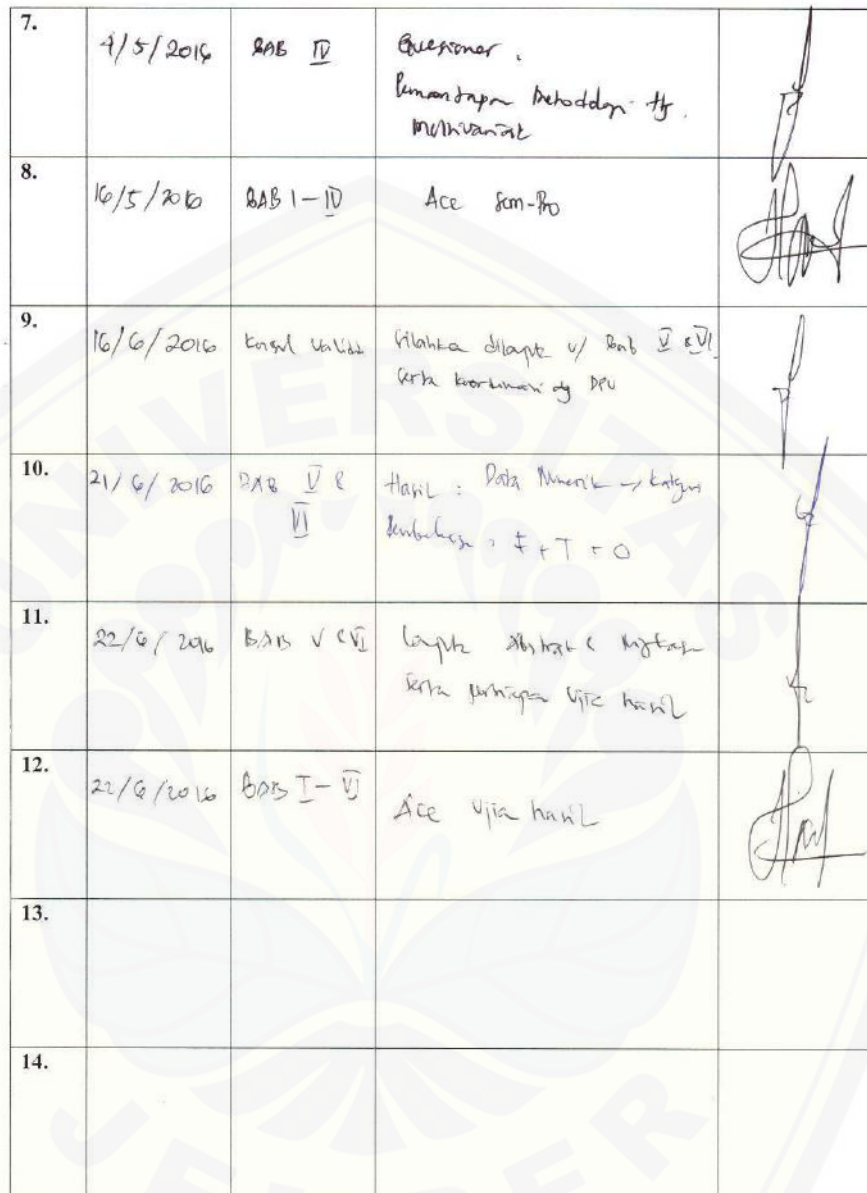 7.
4/5/2016 BAB IV Quesioner.
Pemantapan Metodologi
Multivariat
8.
16/5/2016 BAB I - IV Acc Sem-Pro
9.
16/6/2016 Konsul Validi Silahka dilanjutk u/ Bab V & VI
Serta koordinasi dg DPU
10.
21/6/2016 BAB V & VI Hasil : Data Numerik → Kategori
F + T + O
11.
22/6/2016 BAB V & VI Abstrak &
Serta persiapan Ujia hasil
12.
22/6/2016 BAB I - VI Acc Ujia hasil
13.
14.
UNIVERSITAS
JEMBER